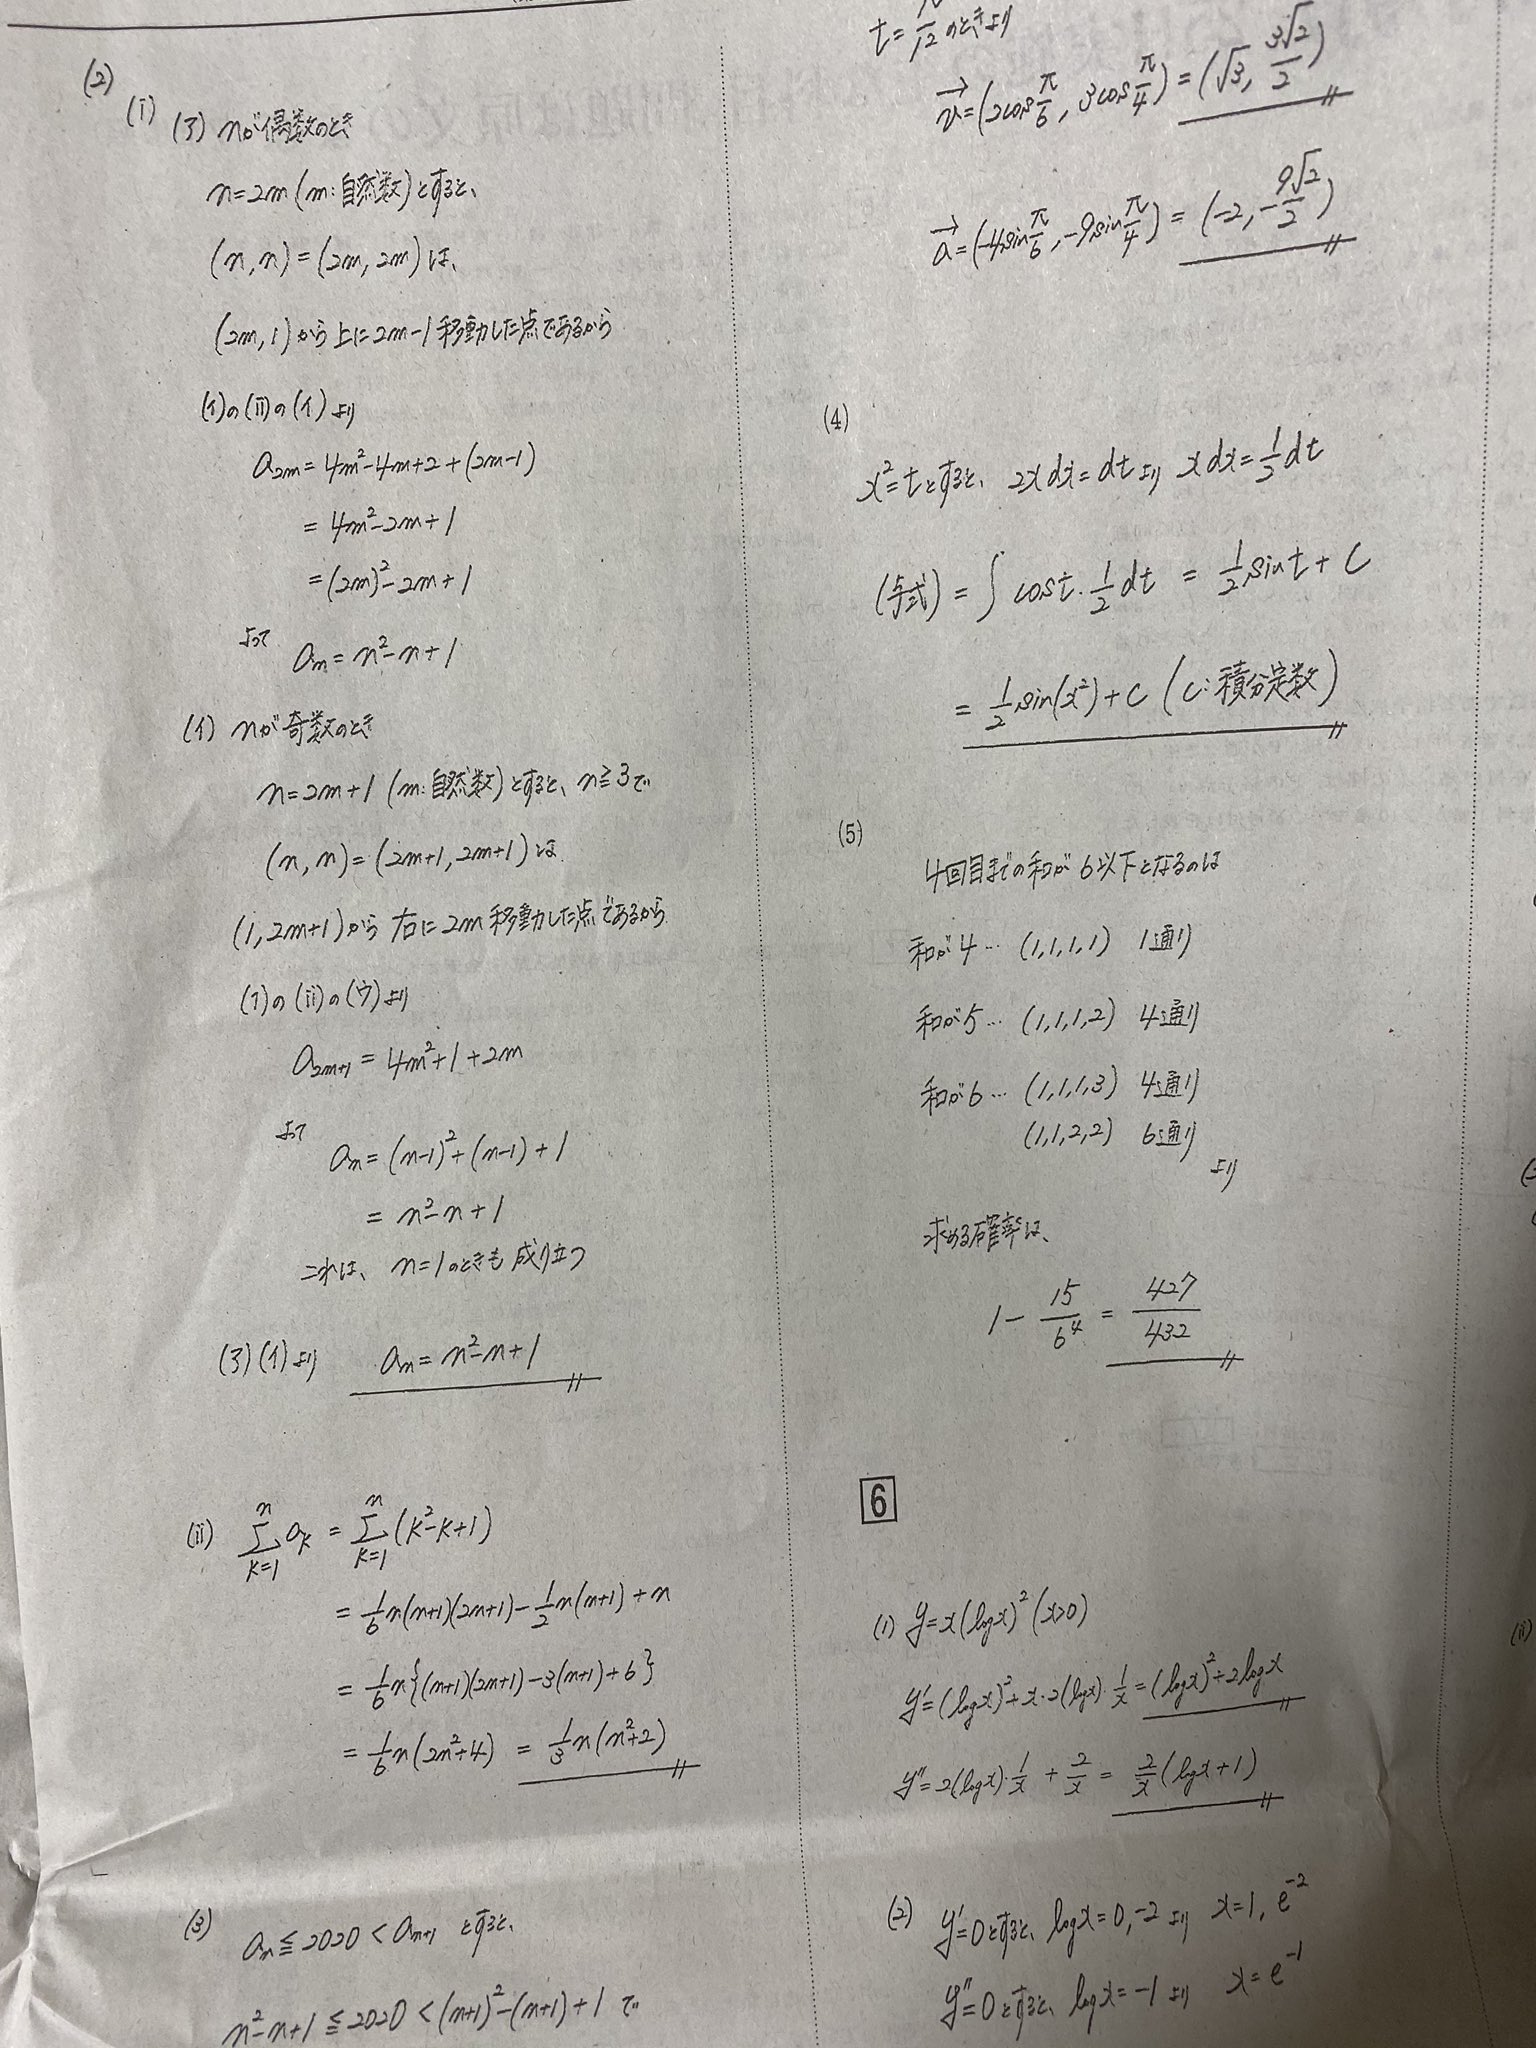 (2)
(i) (ア) nが偶数のとき
n=2m (m:自然数)とすると、
(n,n)=(2m,2m)は、
(2m,1)から上に2m-1移動した点であるから
(1)の(ii)の(イ)より
a₂ₘ=4m²-4m+2+(2m-1)
=4m²-2m+1
=(2m)²-2m+1
よって aₙ=n²-n+1
(イ) nが奇数のとき
n=2m+1 (m:自然数)とすると、n≧3で
(n,n)=(2m+1,2m+1)は
(1,2m+1)から右に2m移動した点であるから
(1)の(ii)の(ウ)より
a₂ₘ₊₁=4m²+1+2m
よって aₙ=(n-1)²+(n-1)+1
=n²-n+1
これは、n=1のときも成り立つ
(ア)(イ)より aₙ=n²-n+1
(ii) Σ[k=1→n] aₖ = Σ[k=1→n] (k²-k+1)
=1/6 n(n+1)(2n+1)-1/2 n(n+1)+n
=1/6 n{(n+1)(2n+1)-3(n+1)+6}
=1/6 n(2n²+4) = 1/3 n(n²+2)
(3) aₙ≦2020<aₙ₊₁ とすると、
n²-n+1≦2020<(n+1)²-(n+1)+1 で
t=π/12のときより
v⃗=(2cos π/6, 3cos π/4)=(√3, 3√2/2)
a⃗=(-4sin π/6, -9sin π/4)=(-2, -9√2/2)
(4)
x²=tとすると、2xdx=dtより xdx=1/2 dt
(与式)=∫cost・1/2 dt = 1/2 sint+C
=1/2 sin(x²)+C (C:積分定数)
(5)
4回目までの和が6以下となるのは
和が4… (1,1,1,1) 1通り
和が5… (1,1,1,2) 4通り
和が6… (1,1,1,3) 4通り
(1,1,2,2) 6通り
より
求める確率は、
1-15/6⁴=427/432
6
(1) y=x(logx)² (x>0)
y'=(logx)²+x・2(logx)・1/x=(logx)²+2logx
y''=2(logx)・1/x+2/x=2/x(logx+1)
(2) y'=0とすると、logx=0,-2より x=1, e⁻²
y''=0とすると、logx=-1より x=e⁻¹
(ii)